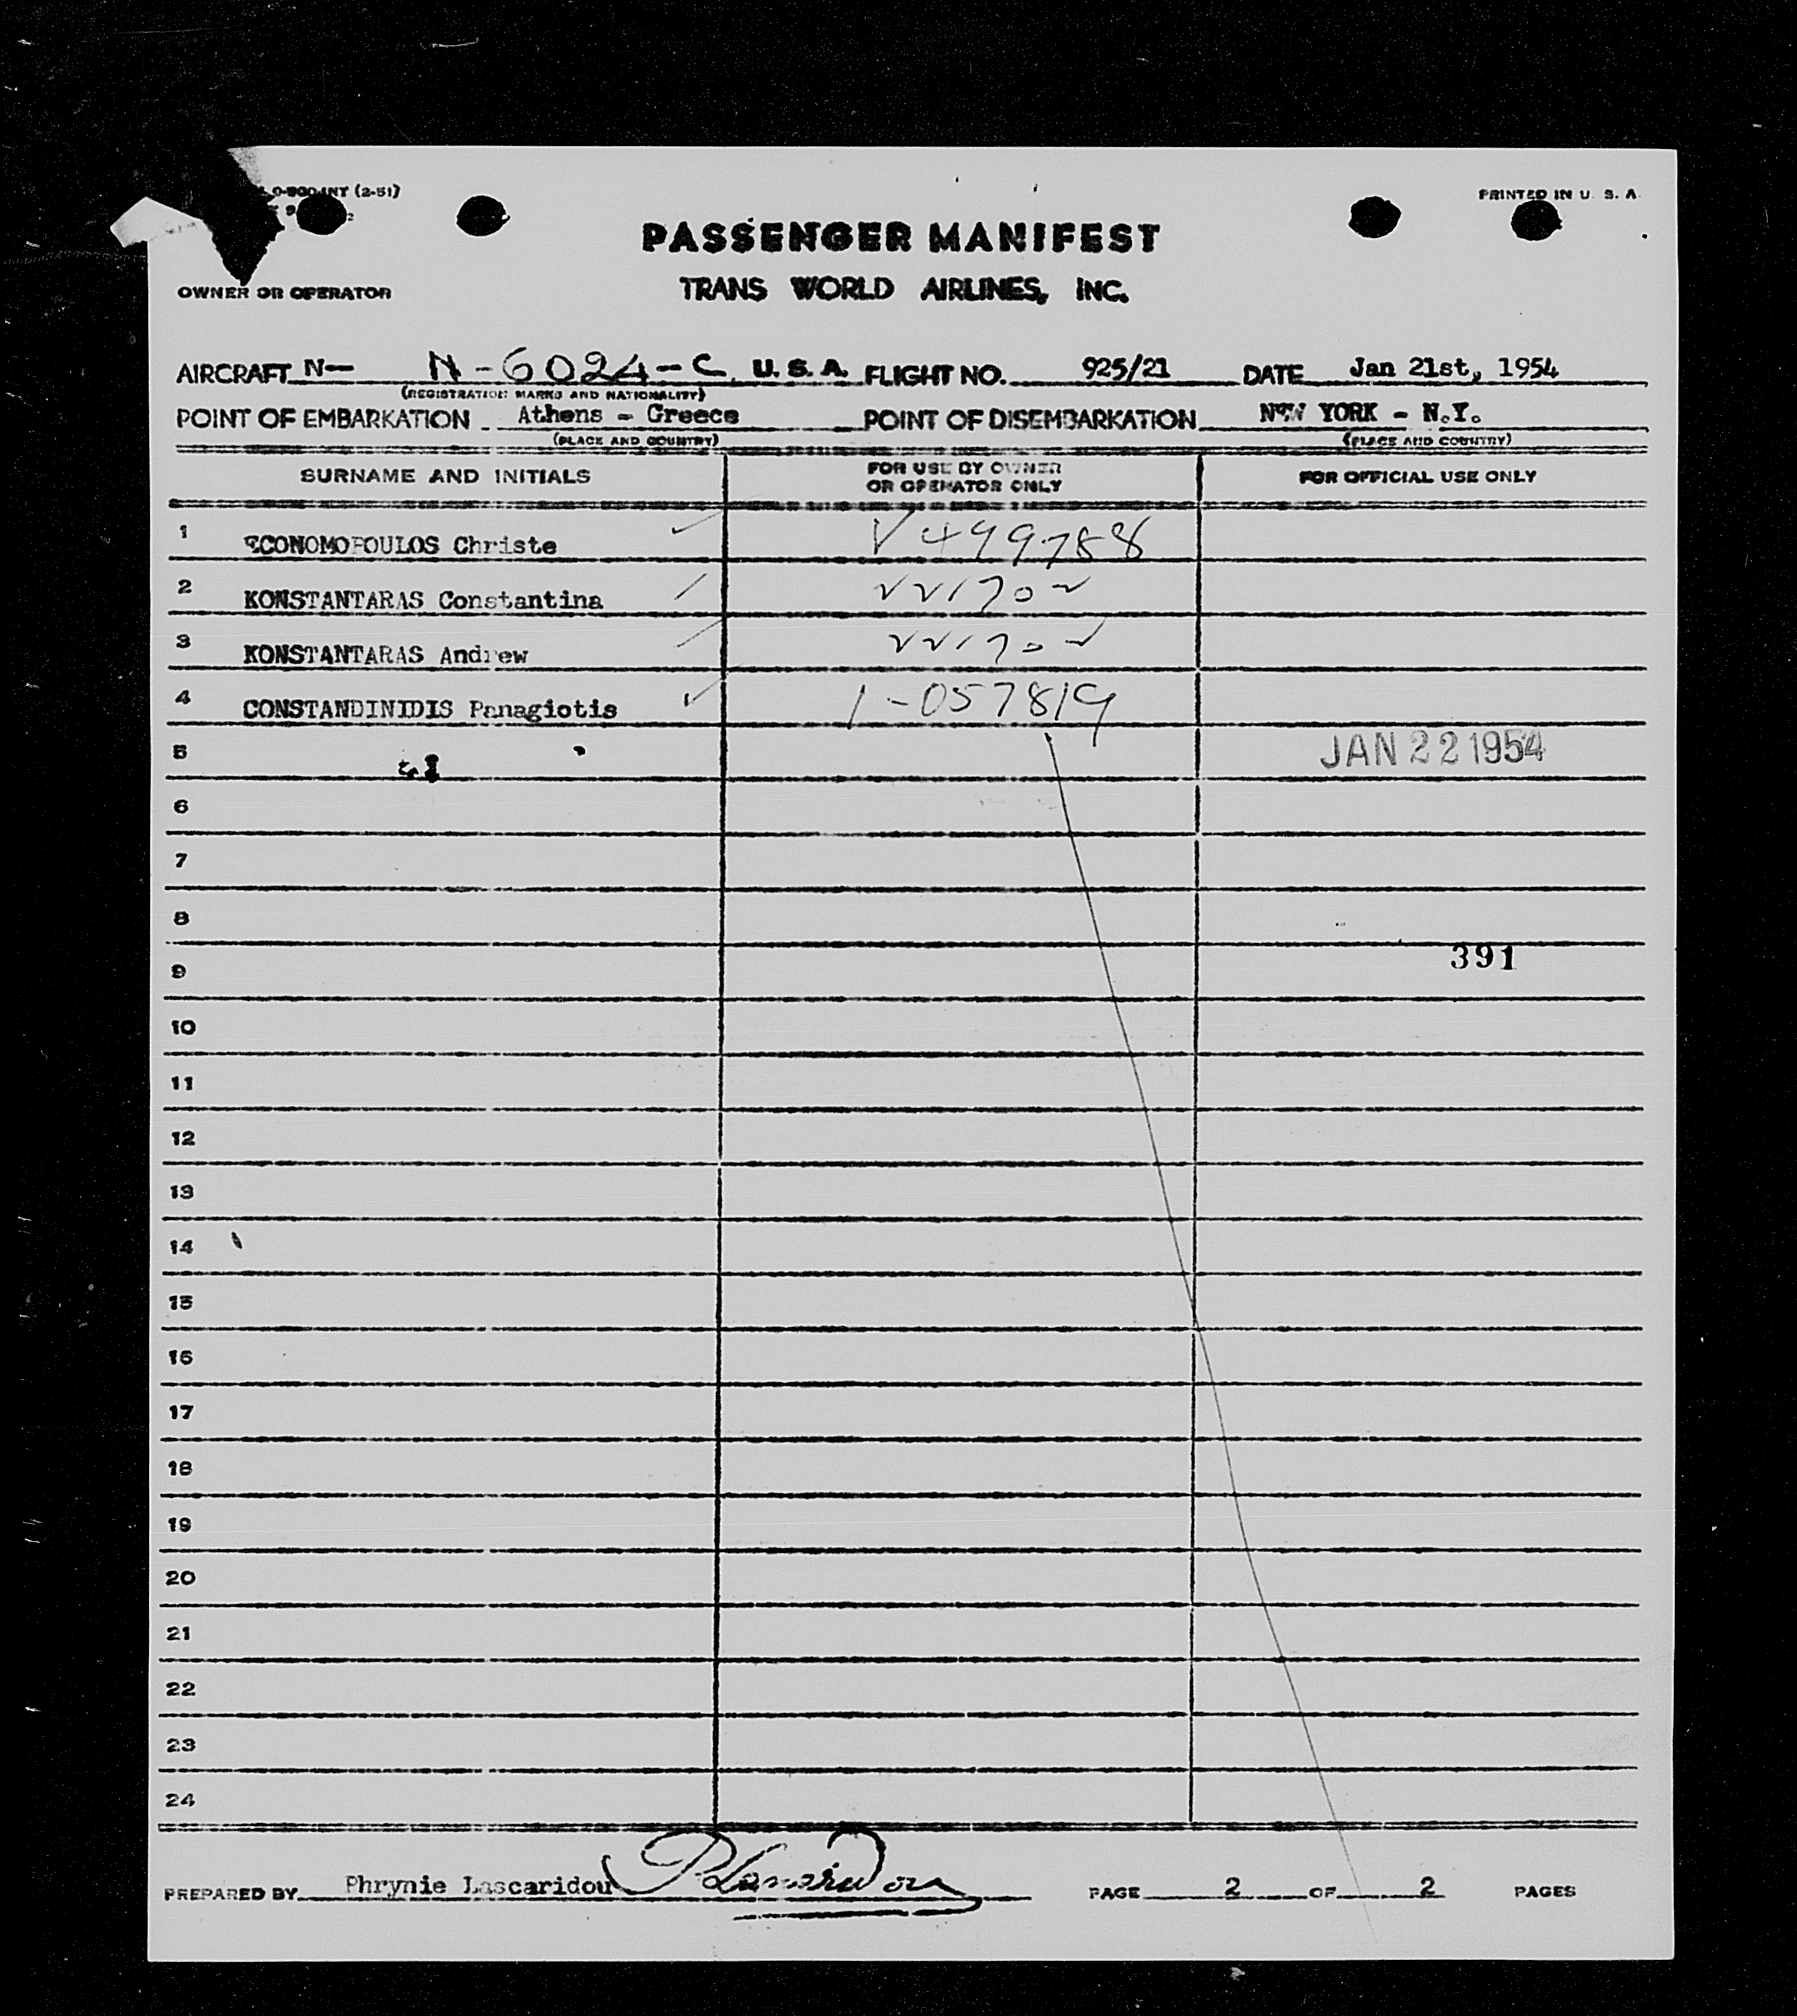 (2-51)
PRINTED IN U. S. A.
PASSENGER MANIFEST
OWNER OR OPERATOR TRANS WORLD AIRLINES, INC.
AIRCRAFT N— N-6024-C U. S. A. FLIGHT NO. 925/21 DATE Jan 21st, 1954
(REGISTRATION MARKS AND NATIONALITY)
POINT OF EMBARKATION Athens - Greece POINT OF DISEMBARKATION NEW YORK - N.Y.
(PLACE AND COUNTRY) (PLACE AND COUNTRY)
SURNAME AND INITIALS FOR USE BY OWNER OR OPERATOR ONLY FOR OFFICIAL USE ONLY
1 ECONOMOPOULOS Christe V499788
2 KONSTANTARAS Constantina
3 KONSTANTARAS Andrew
4 CONSTANDINIDIS Panagiotis 1-057819
5 JAN 22 1954
6
7
8
9 391
10
11
12
13
14
15
16
17
18
19
20
21
22
23
24
PREPARED BY Phrynie Lascaridou PAGE 2 OF 2 PAGES